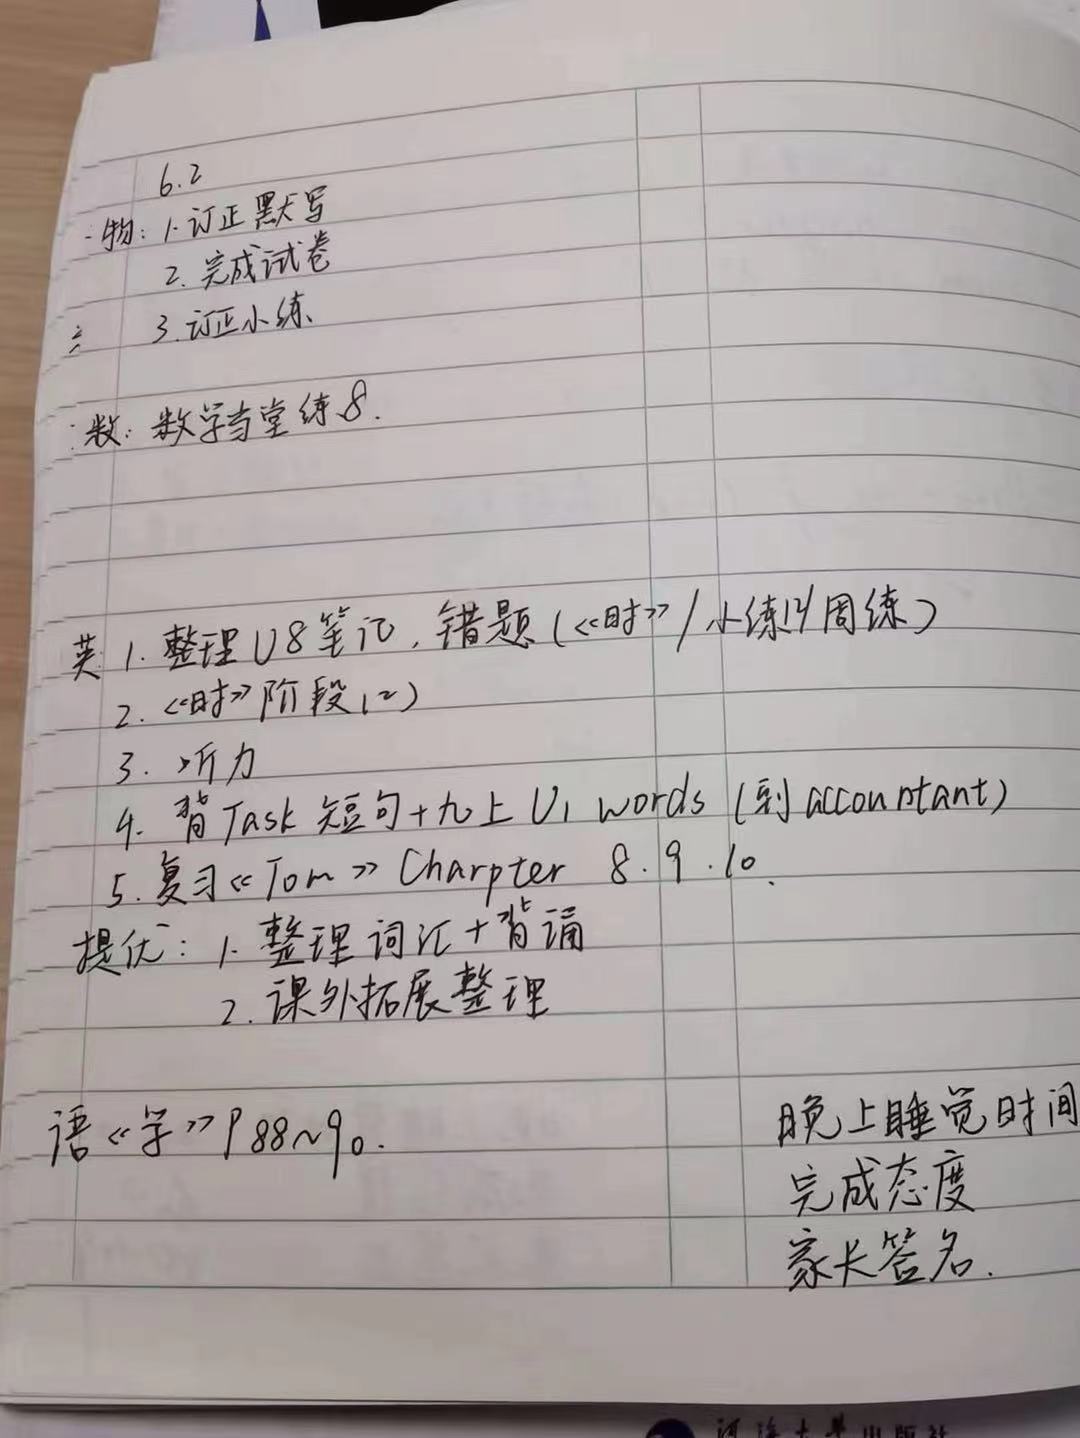 6.2
物: 1. 订正默写
2. 完成试卷
3. 订正小练
数: 数学当堂练8.
英 1. 整理U8笔记, 错题(《时》/小练14周练)
2. 《时》阶段(二)
3. 听力
4. 背Task短句+九上U1 words (到accountant)
5. 复习《Tom》Charpter 8.9.10.
提优: 1. 整理词汇+背诵
2. 课外拓展整理
语《学》P88~90.
晚上睡觉时间
完成态度
家长签名.
河海大学出版社